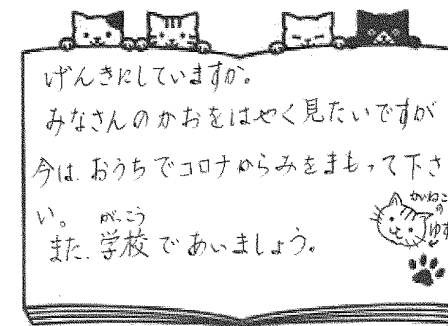 げんきにしていますか。
みなさんのかおをはやく見たいですが
今は、おうちでコロナからみをまもって下さ
い。
がっこう
また、学校であいましょう。
かいねこ
の
ゆず